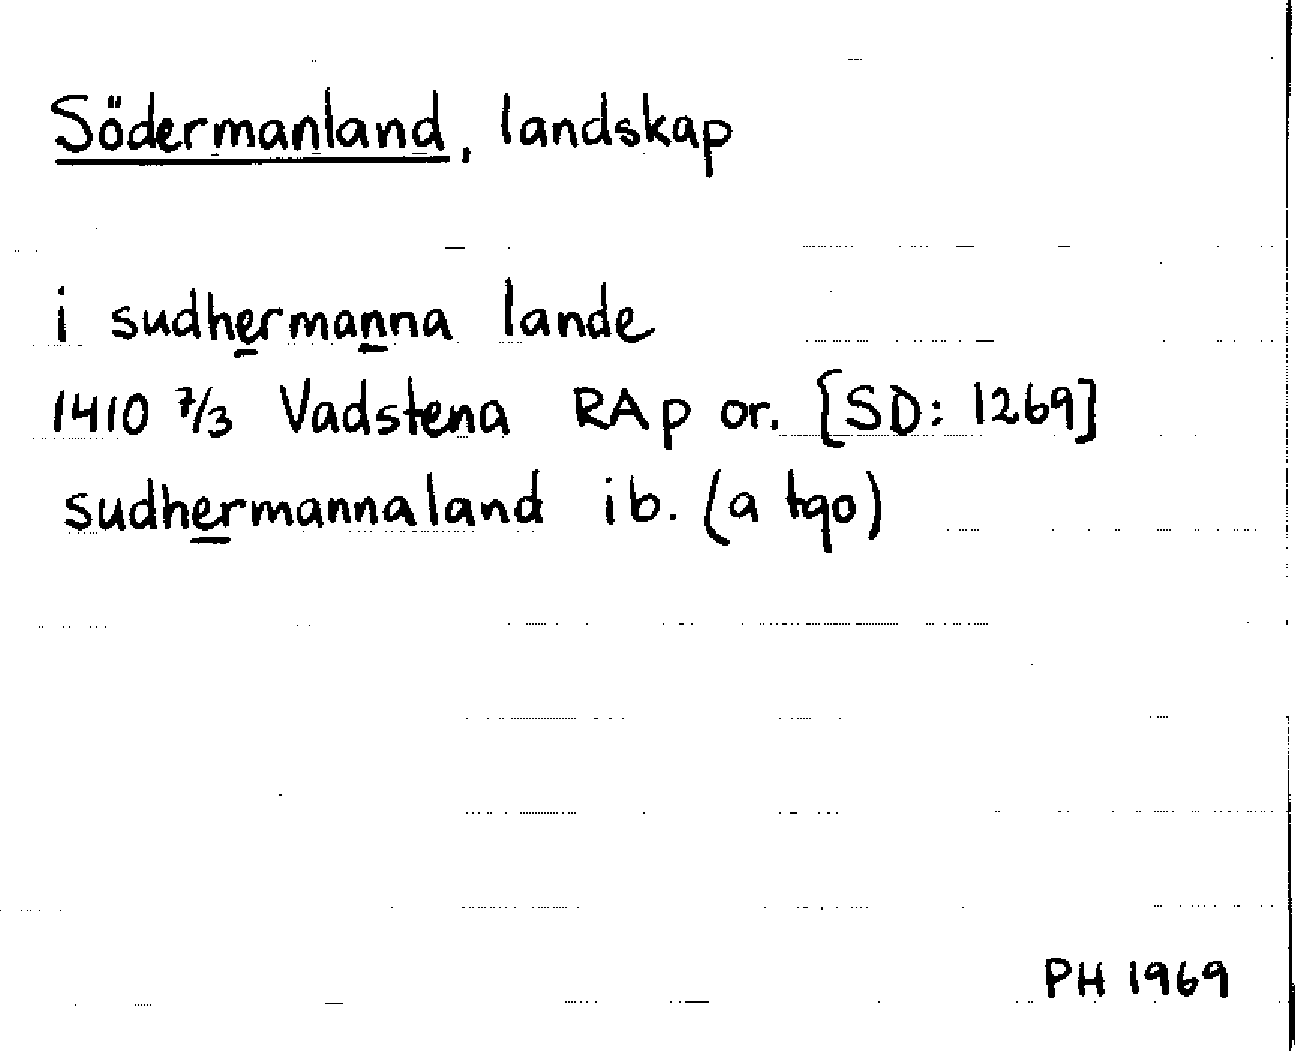 Södermanland, landskap
i sudhermanna lande
1410 7/3 Vadstena RAp or. [SD: 1269]
sudhermannaland ib. (a tgo)
PH 1969